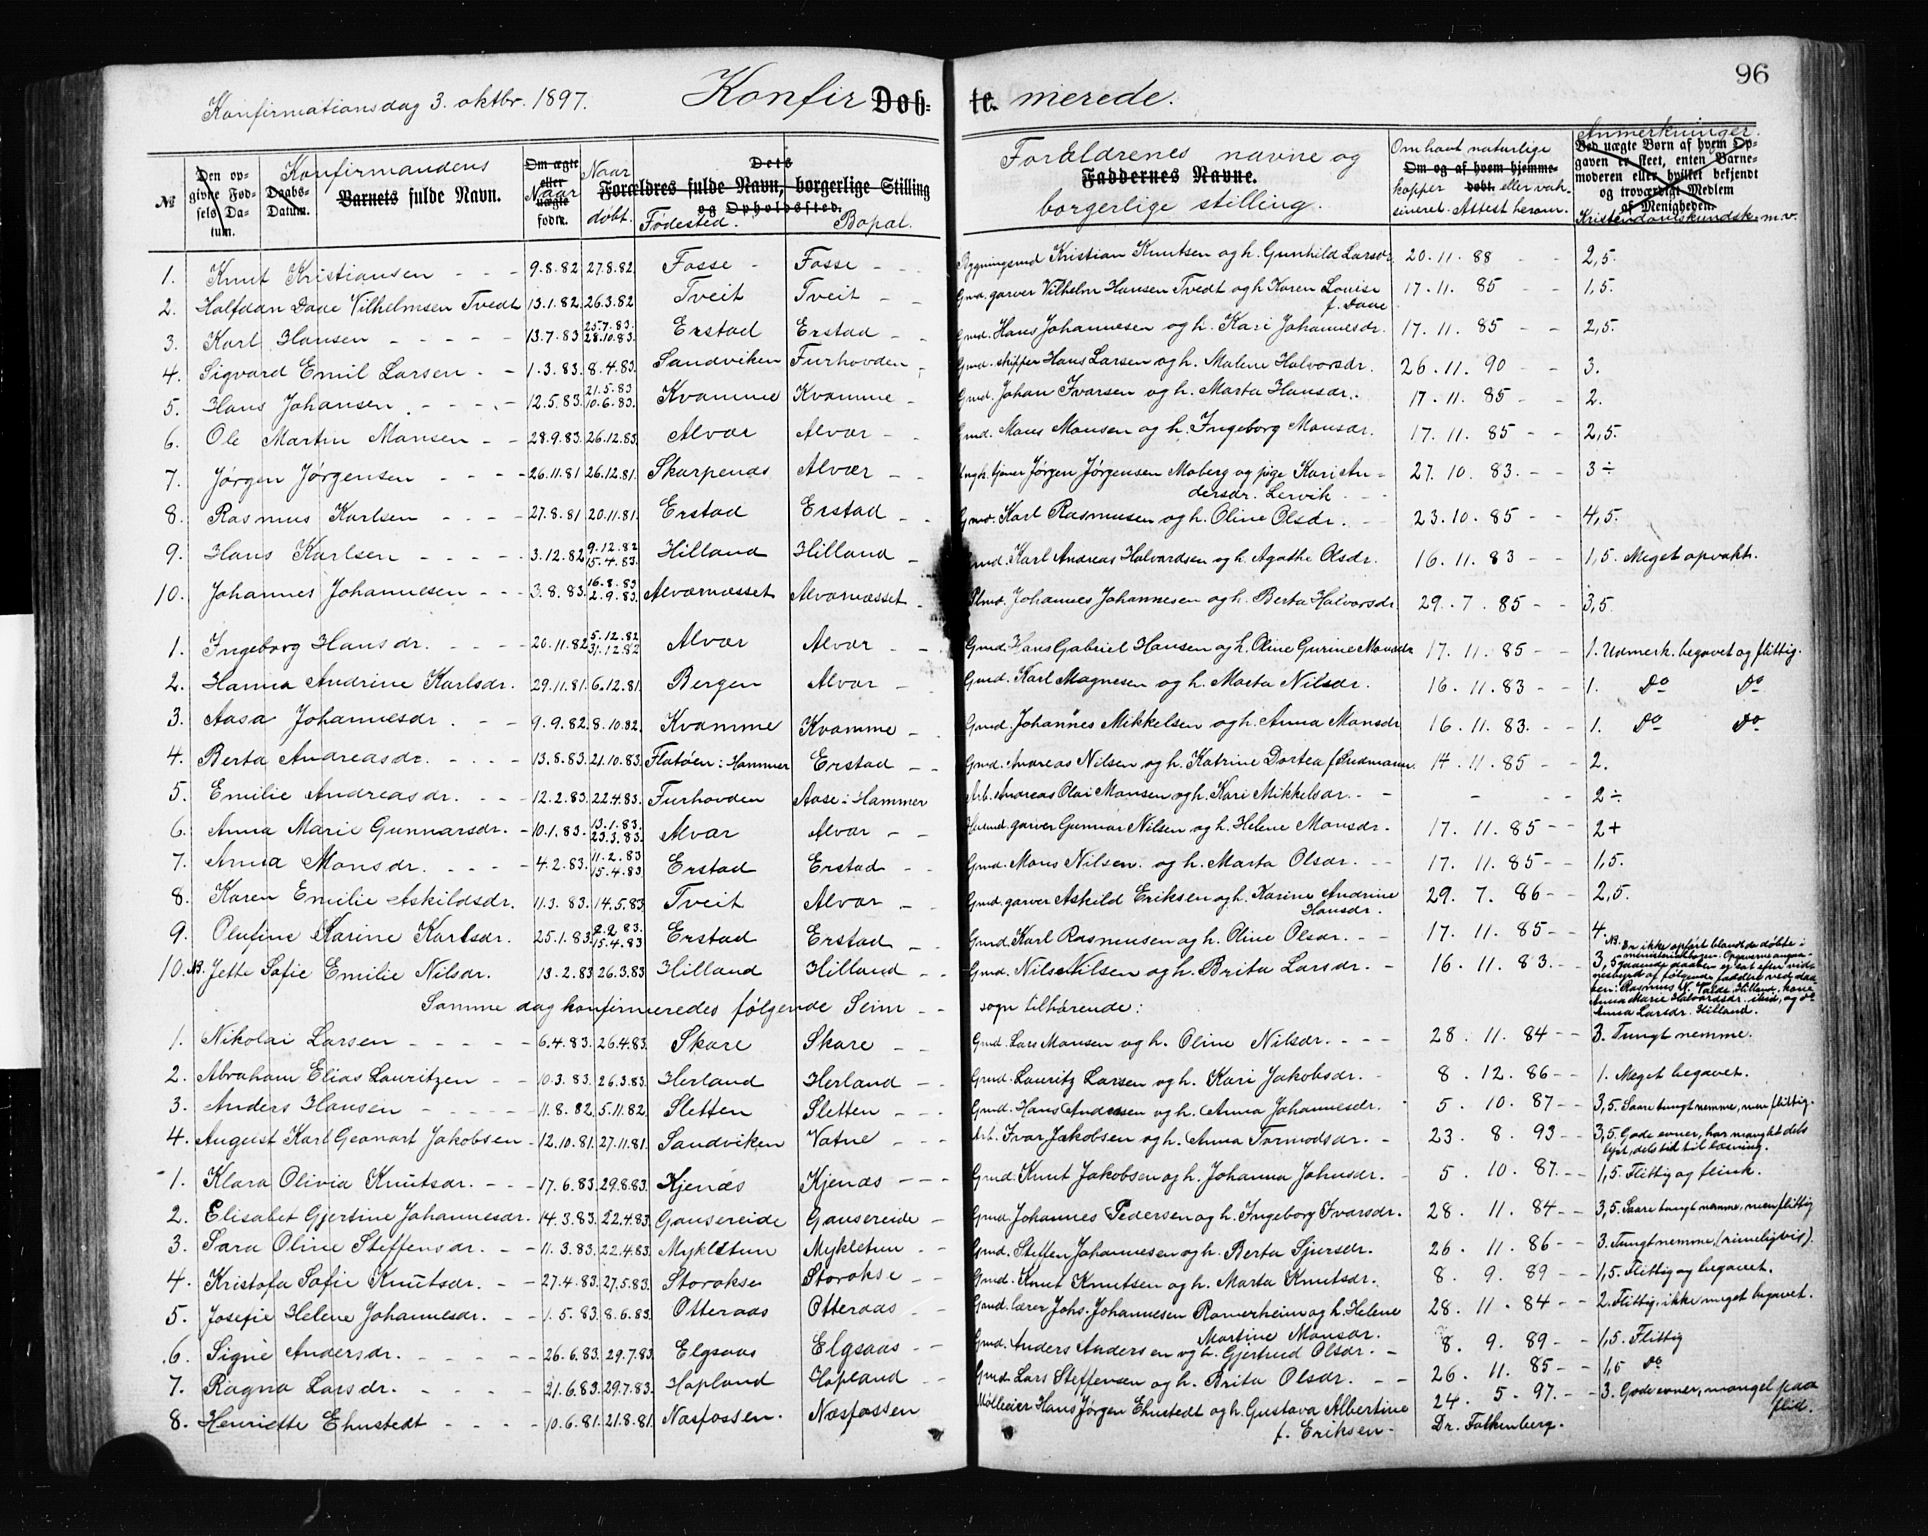 96
Konfirmationsdag 3. oktbr. 1897. Konfir Døb= te. merede.
№ Den opgivne Fødsels Datum. Daabs-Datum. Konfirmandens Barnets fulde Navn. Om ægte eller uægte Naar født. Naar døbt. Dets Forældres fulde Navn, borgerlige Stilling og Opholdssted. Fødested. Bopæl. Forældrenes navne og Faddernes Navne. borgerlige stilling. Om havt naturlige Om og af hvem hjemmedøbt. kopper eller vaksineret. Attest herom. Anmerkninger. Ved uægte Børn af hvem Opgaven er skeet, enten Barnemoderen eller hvilket bekjendt og troværdigt Medlem af Menigheden. Kristendomskundsk. m.v.
1. Knut Kristiansen - - - 9.8.82 27.8.82. Fosse - Fosse - - Bygningsmd Kristian Knutsen og h. Gunhild Larsdr. 20.11.88 - - 2,5.
2. Halfdan Daae Vilhelmsen Tvedt 13.1.82. 26.3.82 Tveit Tveit - - Gmd. garver Vilhelm Hansen Tvedt og h. Karen Louise f. Daae 17.11.85 - - 1,5.
3. Karl Hansen - - - - - 13.7.83 25.7.83. 28.10.83. Erstad Erstad - - Gmd. Hans Johannesen og h. Kari Johannesdr. 17.11.85 - - 2,5.
4. Sigvard Emil Larsen - - 1.3.83. 8.4.83. Sandviken Furhovden - Gmd. skipper Hans Larsen og h. Malene Halvorsdr. 26.11.90 - - 3.
5. Hans Johansen - - - - 12.5.83. 21.5.83 10.6.83. Kvamme Kvamme - Gmd. Johan Ivarsen og h. Marta Hansdr. 17.11.85 - - 2.
6. Ole Martin Monsen - - 28.9.83. 26.12.83. Alvær Alvær - - Gmd. Mons Monsen og h. Ingeborg Monsdr. 17.11.85 - - 2,5.
7. Jørgen Jørgensen - - - 26.11.81 26.12.81. Skarpenæs Alvær - - Ungk. tjener Jørgen Jørgensen Moberg og pige Kari Andersdr. Lervik - - - 27.10.83. - - 3÷
8. Rasmus Karlsen - - - 27.8.81 20.11.81. Erstad Erstad - - Gmd. Karl Rasmusen og h. Oline Olsdr. - 23.10.85 - - 4,5.
9. Hans Karlsen - - - - - 3.12.82 9.12.82 15.4.83. Hilland Hilland - Gmd. Karl Andreas Halvardsen og h. Agathe Olsdr. 16.11.83 - - 1,5. Meget opvakt.
10. Johannes Johannesen - - - 3.8.83. 16.8.83 2.9.83. Alvernæsset Alvernæsset - Plmd. Johannes Johannesen og h. Berta Halvorsdr. 29.7.85 - - 3,5.
1. Ingeborg Hansdr. - - - - 20.11.82 5.12.82 31.12.82 Alvær Alvær - - Gmd. Hans Gabriel Hansen og h. Oline Gurine Monsdr. 17.11.85 - - 1. Udmerk. begavet og flittig.
2. Hanna Andrine Karlsdr. 29.11.81. 6.12.81. Bergen Alvær - Gmd. Karl Magnesen og h. Marta Nilsdr. 16.11.83 - - 1. Do Do
3. Aasa Johannesdr. - - 9.9.82 8.10.82. Kvamme Kvamme - - Gmd. Johannes Mikkelsen og h. Anna Monsdr 16.11.83. - - 1. Do Do
4. Berta Andreasdr. - - - - 13.8.83. 21.10.83. Flatøen i Hammer Erstad - - Gmd. Andreas Nilsen og h. Katrine Dortea f. Andmann. 14.11.85 - - 2.
5. Emilie Andreasdr. - - - 12.2.83. 22.4.83. Furhovden Aase i Hammer Arb. Andreas Olai Monsen og h. Kari Mikkelsdr. - - - - - 2÷
6. Anna Marie Gunnarsdr. - 10.1.83. 13.1.83. 23.3.83. Alvær Alvær - - Husmd. garver Gunnar Nilsen og h. Helene Monsdr. - 17.11.85 - - 2+
7. Anna Monsdr. - - - - 4.2.83. 11.2.83 15.4.83 Erstad Erstad - - Gmd. Mons Nilsen og h. Marta Olsdr. - - 17.11.85 - - 1,5.
8. Karen Emilie Askildsdr. 11.3.83. 14.5.83. Tveit Alvær - - Gmd. garver Askild Eriksen og h. Karine Andrine Hansdr. 29.7.86 - - 2,5.
9. Olufine Karine Karlsdr. 25.1.83. 2.2.83. 15.4.83 Erstad Erstad - - Gmd. Karl Rasmusen og h. Oline Olsdr. - - 17.11.85 - - 4.
10. NB. Jette Sofie Emilie Nilsdr. 13.2.83 26.3.83 Hilland Hilland - Gmd. Nils Nilsen og h. Brita Larsdr. - 16.11.83. - - 3,5 NB. Er ikke opført blandt de døbte i ministerialbogen. Opgaverne angaaende daaben er sat efter vidnesbyrd af følgende faddere ved daaben: Rasmus N. Valde, Hilland, kone Anna Marie Halvardsdr. ibid, og Anna Larsdr. Hilland.
Samme dag konfirmeredes følgende Seim - - sogn tilhørende:
1. Nikolai Larsen - - - - - 6.4.83. 26.4.83. Skare Skare - - Gmd. Lars Monsen og h. Oline Nilsdr. - - - 28.11.84 - - 3. Tungt nemme.
2. Abraham Elias Lauritzen - - 10.3.83. 26.3.83 Herland Herland - - Gmd. Lauritz Larsen og h. Kari Jakobsdr. - 8.12.86 - - 1. Meget begavet.
3. Anders Hansen - - - - - 11.8.82. 5.11.82. Sletten Sletten - - Gmd. Hans Andersen og h. Anna Johannesdr. 5.10.87 - - 3,5. Saare tungt nemme, men flittig.
4. August Karl Georart Jakobsen - 12.10.81. 27.11.81. Sandviken Vatne - - - Arb. Ivar Jakobsen og h. Anna Tormodsdr. - 23.8.93 - - 3,5. Gode evner, har manglet dels lyst, dels tid til læsning.
1. Klara Olivia Knutsdr. - - - 17.6.83. 29.8.83. Kjenæs Kjenæs - - - Gmd. Knut Jakobsen og h. Johanna Johnsdr. - 5.10.87. - - 1,5. Flittig og flink.
2. Elisabet Gjertine Johannesdr. - 14.3.83. 22.4.83. Gausereide Gausereide - Gmd. Johannes Pedersen og h. Ingeborg Ivarsdr. 28.11.84 - - 3,5. Saare tungt nemme, men flittig
3. Sara Oline Steffensdr. - - 11.3.83. 22.4.83. Mykletun Mykletun - - Gmd. Steffen Johannesen og h. Berta Sjursdr. 26.11.86 - - 3. Tungt nemme, (rimeligvis).
4. Kristofa Sofie Knutsdr. - - 27.4.83. 27.5.83. Storokse Storokse - - Gmd. Knut Knutsen og h. Marta Knutsdr. 8.9.89 - - 1,5. Flittig og begavet.
5. Josefie Helene Johannesdr. - - 1.5.83. 8.6.83. Otteraas Otteraas - - Gmd. lærer Johs. Johannesen Romerheim og h. Helene Martine Monsdr. 28.11.84 - - 2. Flittig, ikke meget begavet.
6. Signe Andersdr. - - - - 26.6.83. 29.7.83. Elgsaas Elgsaas - - Gmd. Anders Andersen og h. Gjertrud Olsdr. - 8.9.89 - - 1,5. Flittig
7. Ragna Larsdr. - - - - 21.6.83. 29.7.83. Hopland Hopland - Gmd. Lars Steffensen og h. Brita Olsdr. - - 26.11.85 - - 1,5 Do
8. Henriette Ehnstedt - - - - 10.6.81. 21.8.81. Næsfossen. Næsfossen Mølleier Hans Jørgen Ehnstedt og h. Gustava Albertine f. Eriksen - 24.5.97. - - Dr. Falkenberg. 3. Gode evner, mangel paa flid.